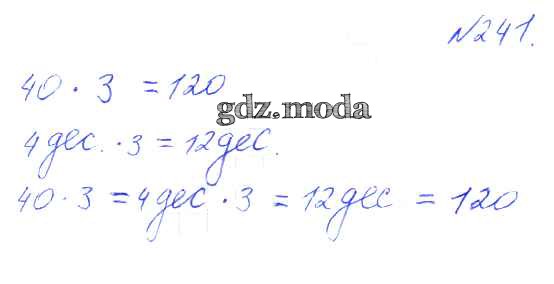 №241.
40 · 3 = 120
gdz.moda
4 дес. · 3 = 12 дес.
40 · 3 = 4 дес · 3 = 12 дес = 120